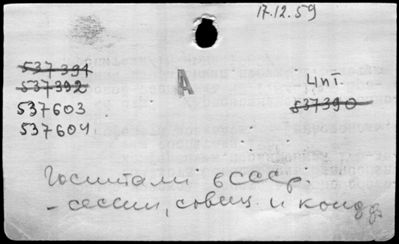 17.12.59
537391
537392
537603
537604
А
4 пт.
537390
Госпитали в СССР.
- сессии, совещ. и конф.